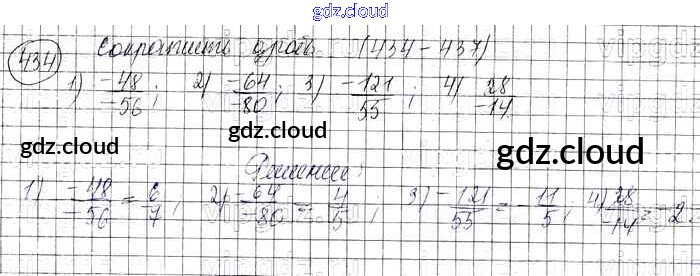 gdz.cloud
434 Сократить дробь (434-437)
1) -48/-56; 2) -64/-80; 3) -121/55; 4) 28/-14
gdz.cloud gdz.cloud gdz.cloud
Решение:
1) -48/-56 = 6/7; 2) -64/-80 = 4/5; 3) -121/55 = -11/5; 4) 28/-14 = -2.